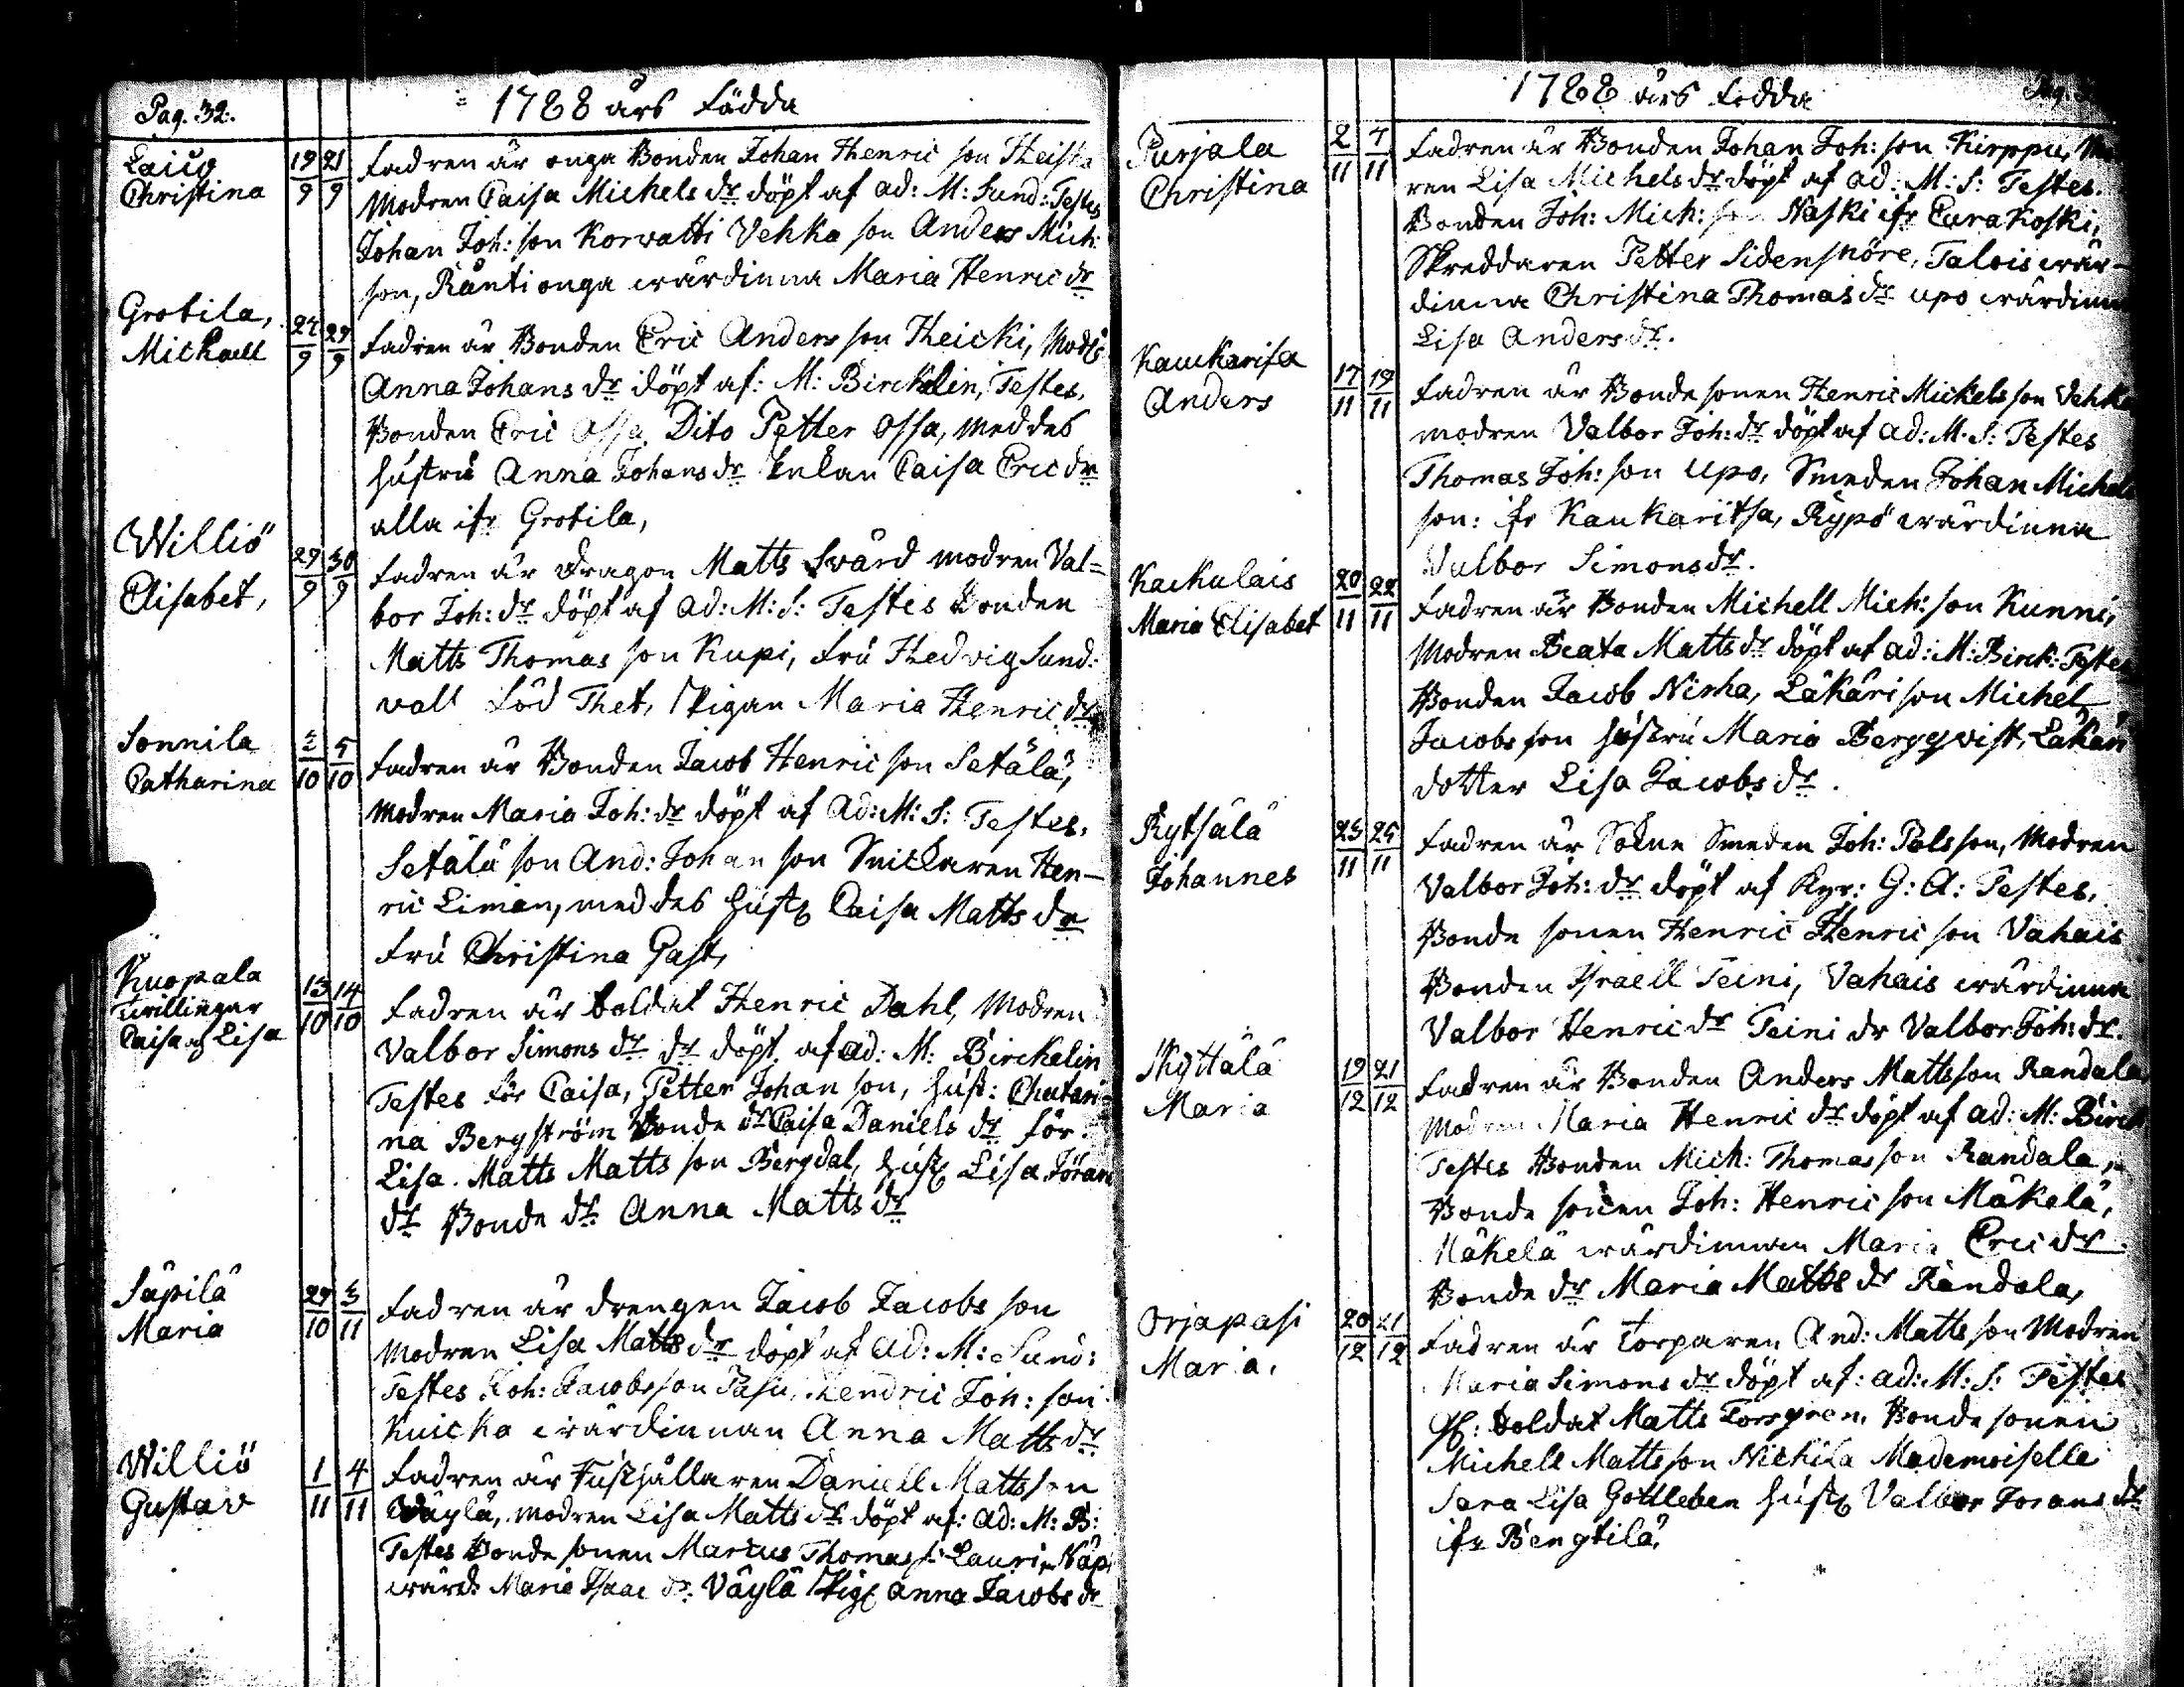 Pag. 32.
1788 års Födda
Laiug
Christina
19/9 21/9
Fadren är onga Bonden Johan Henric son Heista
Modren Caisa Michels dr döpt af ad: M: Sund: Testes
Johan Joh: son Korvatti Vehka son Anders Mich:
son, Ränti onga wärdinna Maria Henric dr
Grotila,
Michaell
27/9 29/9
Fadren är Bonden Eric Anders son Heicki, Modr
Anna Johans dr döpt af: M: Birckelin, Testes,
Bonden Eric Ossa, Dito Petter Ossa, med des
hustru Anna Johans dr Enkan Caisa Eric dr
alla ifr Grotila,
Williö
Elisabet,
29/9 30/9
Fadren är Dragon Matts Svärd modren Val=
bor Joh: dr döpt af ad: M: S: Testes Bonden
Matts Thomas son Kupi, Fru Hedvig Sund:
vall född Thet, Pigan Maria Henric dr
Sonnila
Catharina
3/10 5/10
Fadren är Bonden Jacob Henric son Setälä,
Modren Maria Joh: dr döpt af Ad: M: S: Testes,
Setälä son And: Johan son Snickaren Hen-
ric Liman, med des hust Caisa Matts dr
Fru Christina Gast,
Kuopala
tvillingar
Caisa och Lisa
13/10 14/10
Fadren är Soldat Henric Dahl, Modren
Valbor Simons dr dr döpt af ad: M: Birckelin
Testes för Caisa, Petter Johan son, hust: Chatari-
na Bergström Bonde dr Caisa Daniels dr för
Lisa. Matts Matts son Bergdal, hust Lisa Jöran
dr Bonde dr Anna Matts dr
Säpilä
Maria
29/10 3/11
Fadren är drengen Jacob Jacobs son
Modren Lisa Matts dr döpt af Ad: M: Sund:
Testes Joh: Jacobs son Pasu, Hendric Joh: son
Knicka wärdinnan Anna Matts dr
Williö
Gustav
1/11 4/11
Fadren är Rusthållaren Daniell Matts son
Wäylä, modren Lisa Matts dr döpt af: ad: M: B:
Testes Bonde sonen Marcus Thomas s: Lauri, Näpi
wärd: Maria Isaac dr Väylä Pig Anna Jacobs dr
1788 års Födda
Pag.
Purjala
Christina
2/11 7/11
Fadren är Bonden Johan Joh: son Kirppu, Mo
ren Lisa Michels dr döpt af ad: M: S: Testes.
Bonden Joh: Mich: son Naski ifr Eurakoski,
Skreddaren Petter Sidensnöre, Talois wär-
dinna Christina Thomas dr upo wärdinna
Lisa Anders dr.
Kaukarisa
Anders
17/11 19/11
Fadren är Bonde sonen Henric Mickels son Vehka
modren Valbor Joh: dr döpt af ad: M: S: Testes
Thomas Joh: son upo, Smeden Johan Michels
son: ifr Kaukaritsa, Rypö wärdinna
Valbor Simons dr.
Kackulais
Maria Elisabet
20/11 22/11
Fadren är Bonden Michell Mich: son Kunni,
Modren Beata Matts dr döpt af ad: M: Birck: Testes
Bonden Jacob Nirha, Läkäri son Michel
Jacobs son hustru Maria Bergqvist, Läkäri
dotter Lisa Jacobs dr.
Rytsälä
Johannes
23/11 25/11
Fadren är Sokne Smeden Joh: Pols son, Modren
Valbor Joh: dr döpt af Kyr: G: A: Testes,
Bonde sonen Henric Henric son Vahais
Bonden Israell Teini, Vahais wärdinna
Valbor Henric dr Teini dr Valbor Joh: dr.
Skyttälä
Maria
19/12 21/12
Fadren är Bonden Anders Matts son Randala
Modren Maria Henric dr döpt af ad: M: Birck
Testes Bonden Mich: Thomas son Randala,
Bonde sonen Joh: Henric son Mäkelä,
Mäkelä wärdinnan Maria Eric dr
Bonde dr Maria Matts dr Randala,
Orjapasi
Maria,
20/12 21/12
Fadren är Torparen And: Matts son Modren
Maria Simons dr döpt af: ad: M: S: Testes
Soldat Matts Forsgren, Bonde sonen
Michell Matts son Nickila Mademoiselle
Sara Lisa Gottleben hust Valbor Jorans dr
ifr Bengtilä,